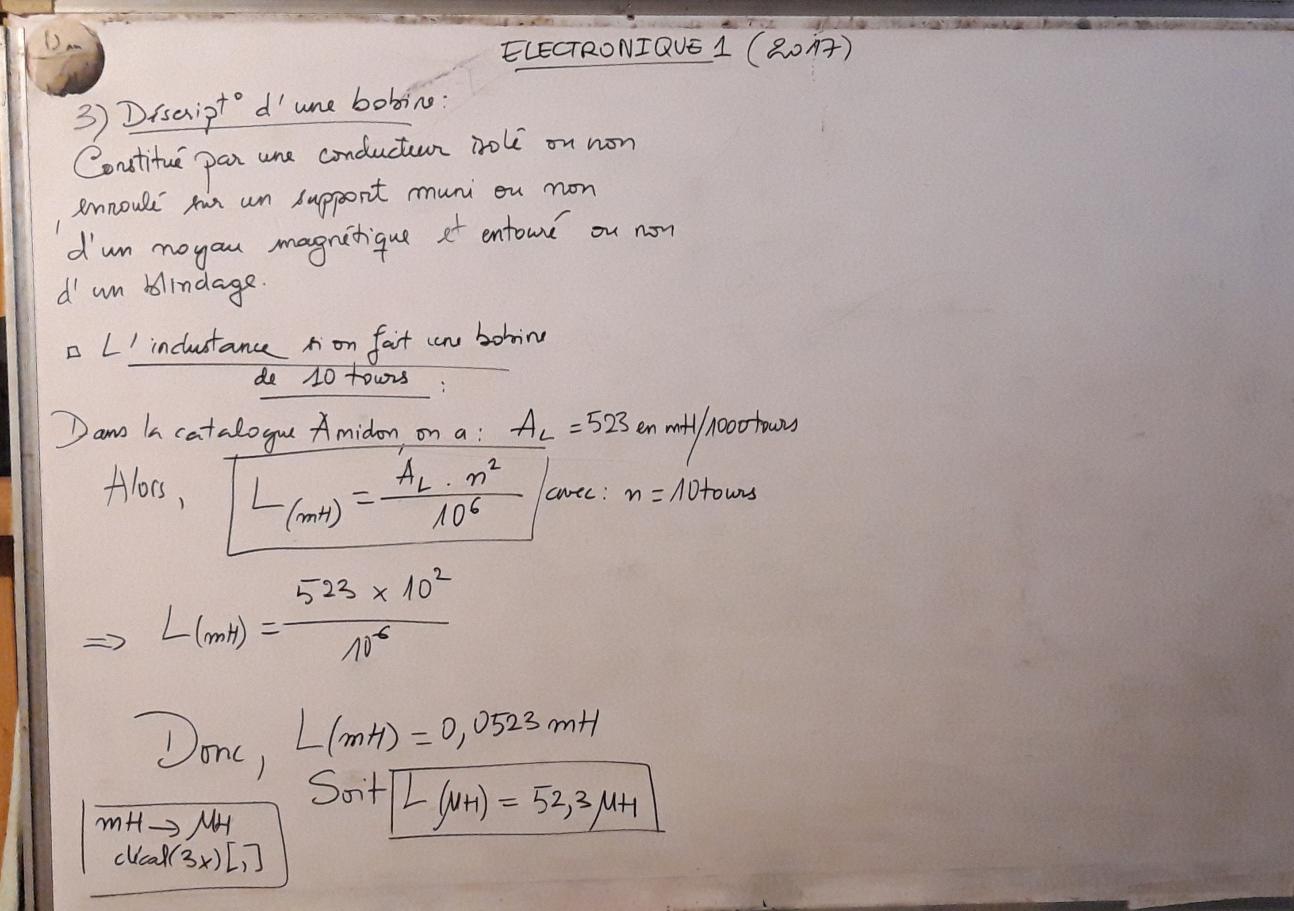 ELECTRONIQUE 1 (2017)
3) Déscript° d'une bobine:
Constitué par une conducteur isolé ou non
enroulé sur un support muni ou non
d'un noyau magnétique et entouré ou non
d'un blindage.
▫ L'industance si on fait une bobine
de 10 tours :
Dans la catalogue Amidon, on a: A_L = 523 en mH/1000tours
Alors, L(mH) = A_L . n² / 10⁶ avec: n = 10 tours
=> L(mH) = 523 x 10² / 10⁻⁶
Donc, L(mH) = 0,0523 mH
Soit L (µH) = 52,3 µH
mH → µH
décal(3x)[,]